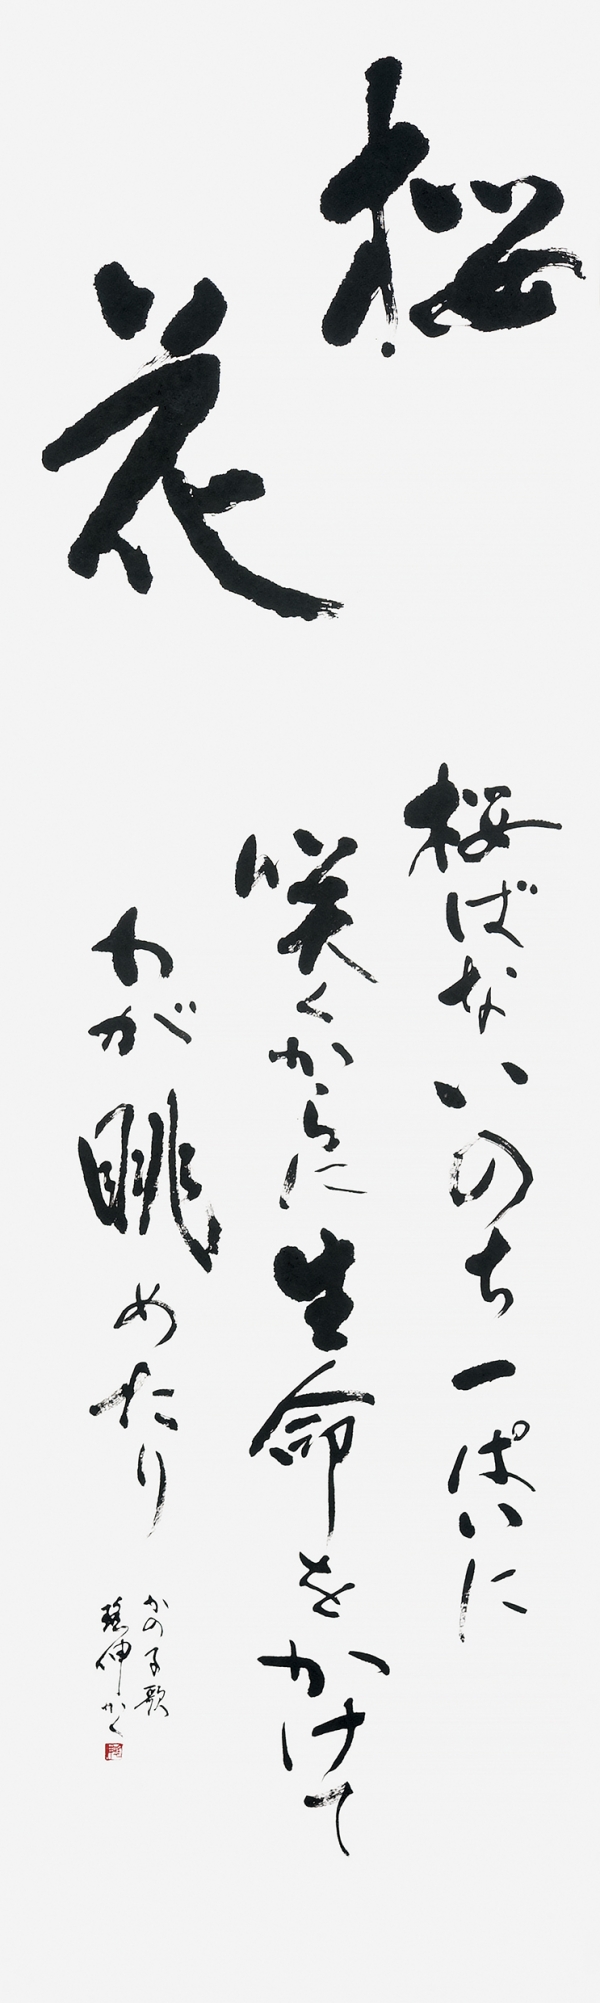 桜花
桜ばないのち一ぱいに
咲くからに生命をかけて
わが眺めたり
かの子歌
瑤伸かく